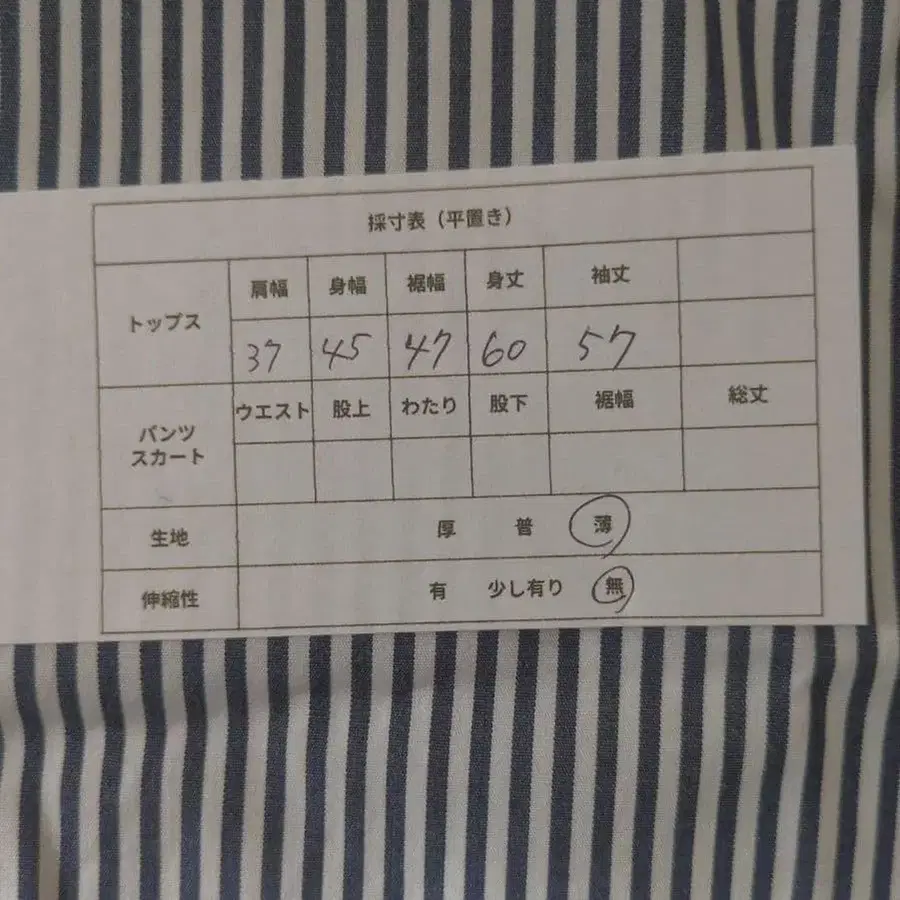 採寸表（平置き）
トップス 肩幅 身幅 裾幅 身丈 袖丈
37 45 47 60 57
パンツ スカート ウエスト 股上 わたり 股下 裾幅 総丈
生地 厚 普 薄
伸縮性 有 少し有り 無